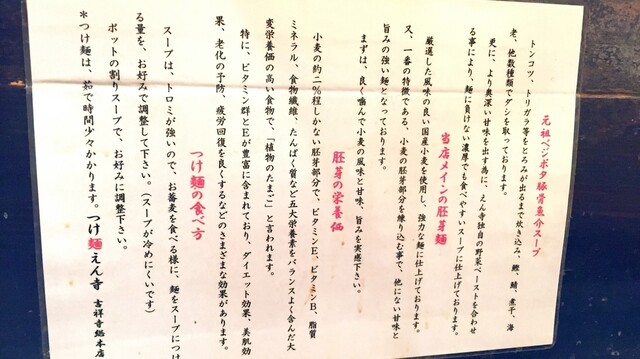 元祖ベジポタ豚骨魚介スープ
トンコツ、トリガラ等をとろみが出るまで炊き込み、鰹、鯖、煮干、海
老、他数種類でダシを取っております。
更に、より奥深い甘味を出す為に、えん寺独自の野菜ペーストを合わせ
る事により、麺に負けない濃厚でも食べやすいスープに仕上げております。
当店メインの胚芽麺
厳選した風味の良い国産小麦を使用し、強力な麺に仕上げております。
又、一番の特徴である、小麦の胚芽部分を練り込む事で、他にない甘味と
旨みの強い麺となっております。
まずは、良く噛んで小麦の風味と甘味、旨みを実感下さい。
胚芽の栄養価
小麦の約二%程しかない胚芽部分で、ビタミンE、ビタミンB、脂質
ミネラル、食物繊維、たんぱく質など五大栄養素をバランスよく含んだ大
変栄養価の高い食物で、「植物のたまご」と言われます。
特に、ビタミンB群とEが豊富に含まれており、ダイエット効果、美肌効
果、老化の予防、疲労回復を良くするなどのさまざまな効果があります。
つけ麺の食べ方
スープは、トロミが強いので、お蕎麦を食べる様に、麺をスープにつけ
る量を、お好みで調整して下さい。(スープが冷めにくいです)
ポットの割りスープで、お好みに調整下さい。
*つけ麺は、茹で時間少々かかります。つけ麺えん寺 吉祥寺総本店